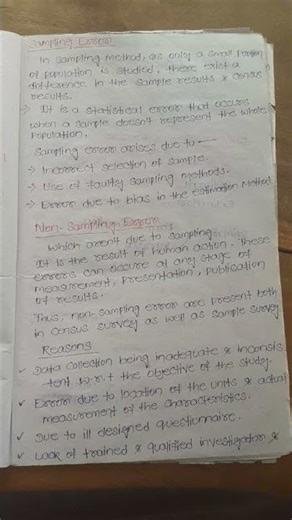 Sampling Error
In sampling method, as only a small portion
of population is studied, there exist a
difference in the sample results & census
results.
→ It is a statistical error that occurs
when a sample doesn't represent the whole
population.
Sampling error arises due to —
→ Incorrect selection of sample.
→ Use of faulty sampling methods.
→ Error due to bias in the estimation Method
Non-Sampling Error
Which aren't due to sampling.
It is the result of human action. These
errors can occure at any stage of
measurement, Presentation, Publication
of results.
Thus, non-sampling error are present both
in census survey as well as sample survey
Reasons
✓ Data collection being inadequate & inconsis
tent w.r.t the objective of the study.
✓ Error due to location of the units & actual
measurement of the characteristics.
✓ Due to ill designed questionnaire.
✓ Lack of trained & qualified investigator &